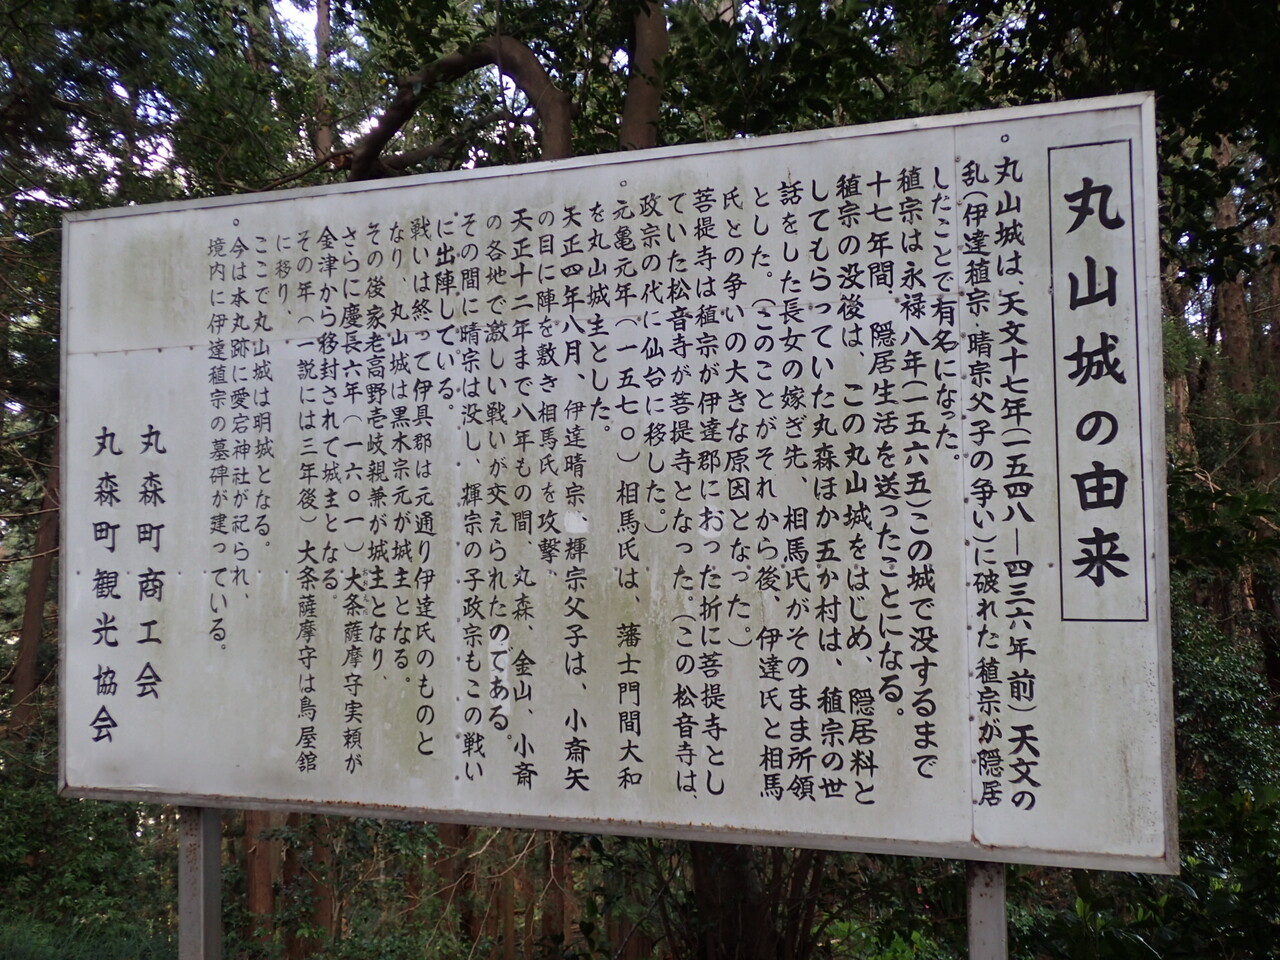 丸山城の由来
。丸山城は、天文十七年(一五四八―四三六年前)天文の
乱(伊達稙宗・晴宗父子の争い)に破れた稙宗が隠居
したことで有名になった。
稙宗は永禄八年(一五六五)この城で没するまで
十七年間、隠居生活を送ったことになる。
稙宗の没後は、この丸山城をはじめ、隠居料と
してもらっていた丸森ほか五か村は、稙宗の世
話をした長女の嫁ぎ先、相馬氏がそのまま所領
とした。(このことがそれから後、伊達氏と相馬
氏との争いの大きな原因となった。)
菩提寺は稙宗が伊達郡におった折に菩提寺とし
ていた松音寺が菩提寺となった。(この松音寺は、
政宗の代に仙台に移した。)
。元亀元年(一五七〇)相馬氏は、藩士門間大和
を丸山城主とした。
天正四年八月、伊達晴宗 輝宗父子は、小斎矢
の目に陣を敷き相馬氏を攻撃、
天正十二年まで八年もの間、丸森、金山、小斎
の各地で激しい戦いが交えられたのである。
その間に晴宗は没し、輝宗の子政宗もこの戦い
に出陣している。
戦いは終って伊具郡は元通り伊達氏のものと
なり、丸山城は黒木宗元が城主となる。
その後家老高野壱岐親兼が城主となり、
さらに慶長六年(一六〇一)大条薩摩守実頼が
金津から移封されて城主となる。
その年(一説には三年後)大条薩摩守は鳥屋舘
に移り、
ここで丸山城は明城となる。
。今は本丸跡に愛宕神社が祀られ、
境内に伊達稙宗の墓碑が建っている。
丸森町商工会
丸森町観光協会